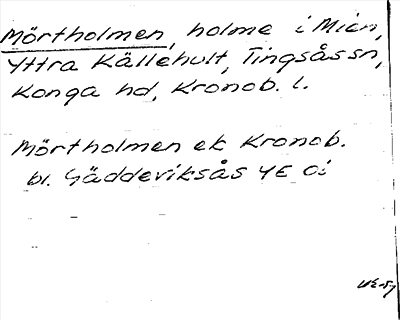 Mörtholmen, holme i Mien,
Yttra Källehult, Tingsås sn,
Konga hd, Kronob. l.
Mörtholmen ek Kronob.
bl. Gäddeviksås 4E